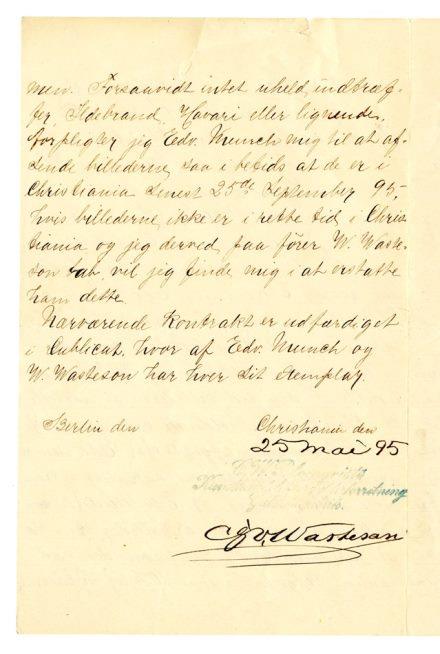 men. Forsaavidt intet uheld, indtræf-
fer, Ildebrand, Havari eller lignende,
forpligter jeg Edv. Munch mig til at af-
sende billederne, saa i betids, at de er i
Christiania senest 25de September 95,
hvis billederne ikke er i rette tid i Chris-
tiania og jeg derved paa fører W. Waste-
son tab, vil jeg finde mig i at erstatte
ham dette.
Nærværende Kontrakt er udfærdiget
i Dublicat, hvor af Edv. Munch og
W. Wasteson har hver sit Exemplar.
Berlin den Christiania den
25 Mai 95
Wasteson